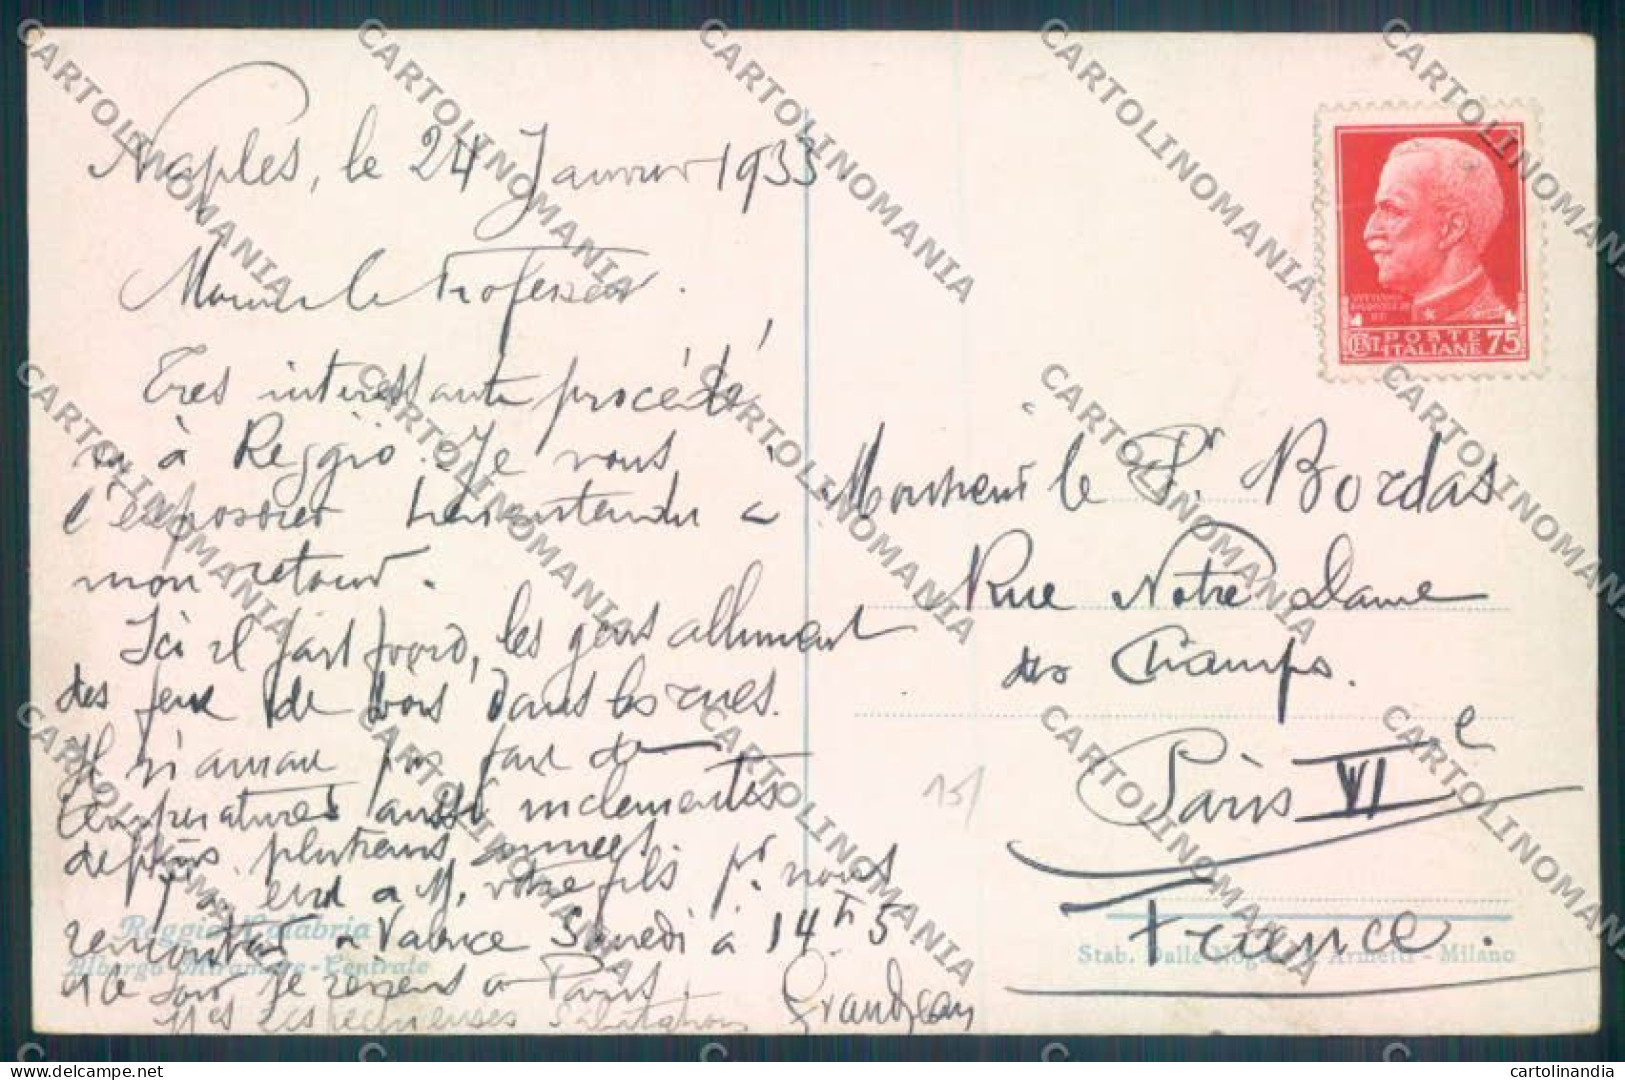 Naples, le 24 Janvier 1933
Monsieur le Professeur.
Très intéressante procédé
à Reggio. Je vous
l'exposerai bien entendu à
mon retour.
Ici il fait froid, les gens allument
des feux de bois dans les rues.
Il n'avait pas fait de
températures aussi inclémentes
depuis plusieurs années.
à M. votre fils pr. nous
remonter à Valence Samedi à 14h5
et ce soir je reviens à Paris.
Mes respectueuses salutations Grandjean
Reggio Calabria
Albergo Miramare-Centrale
VITTORIO
CENT. POSTE
ITALIANE 75
Monsieur le Pr. Bordas
Rue Notre Dame
des Champs.
Paris VIe
France.
15/
Stab. Dalle Nogare & Armetti - Milano
CARTOLINOMANIA
cartolinandia